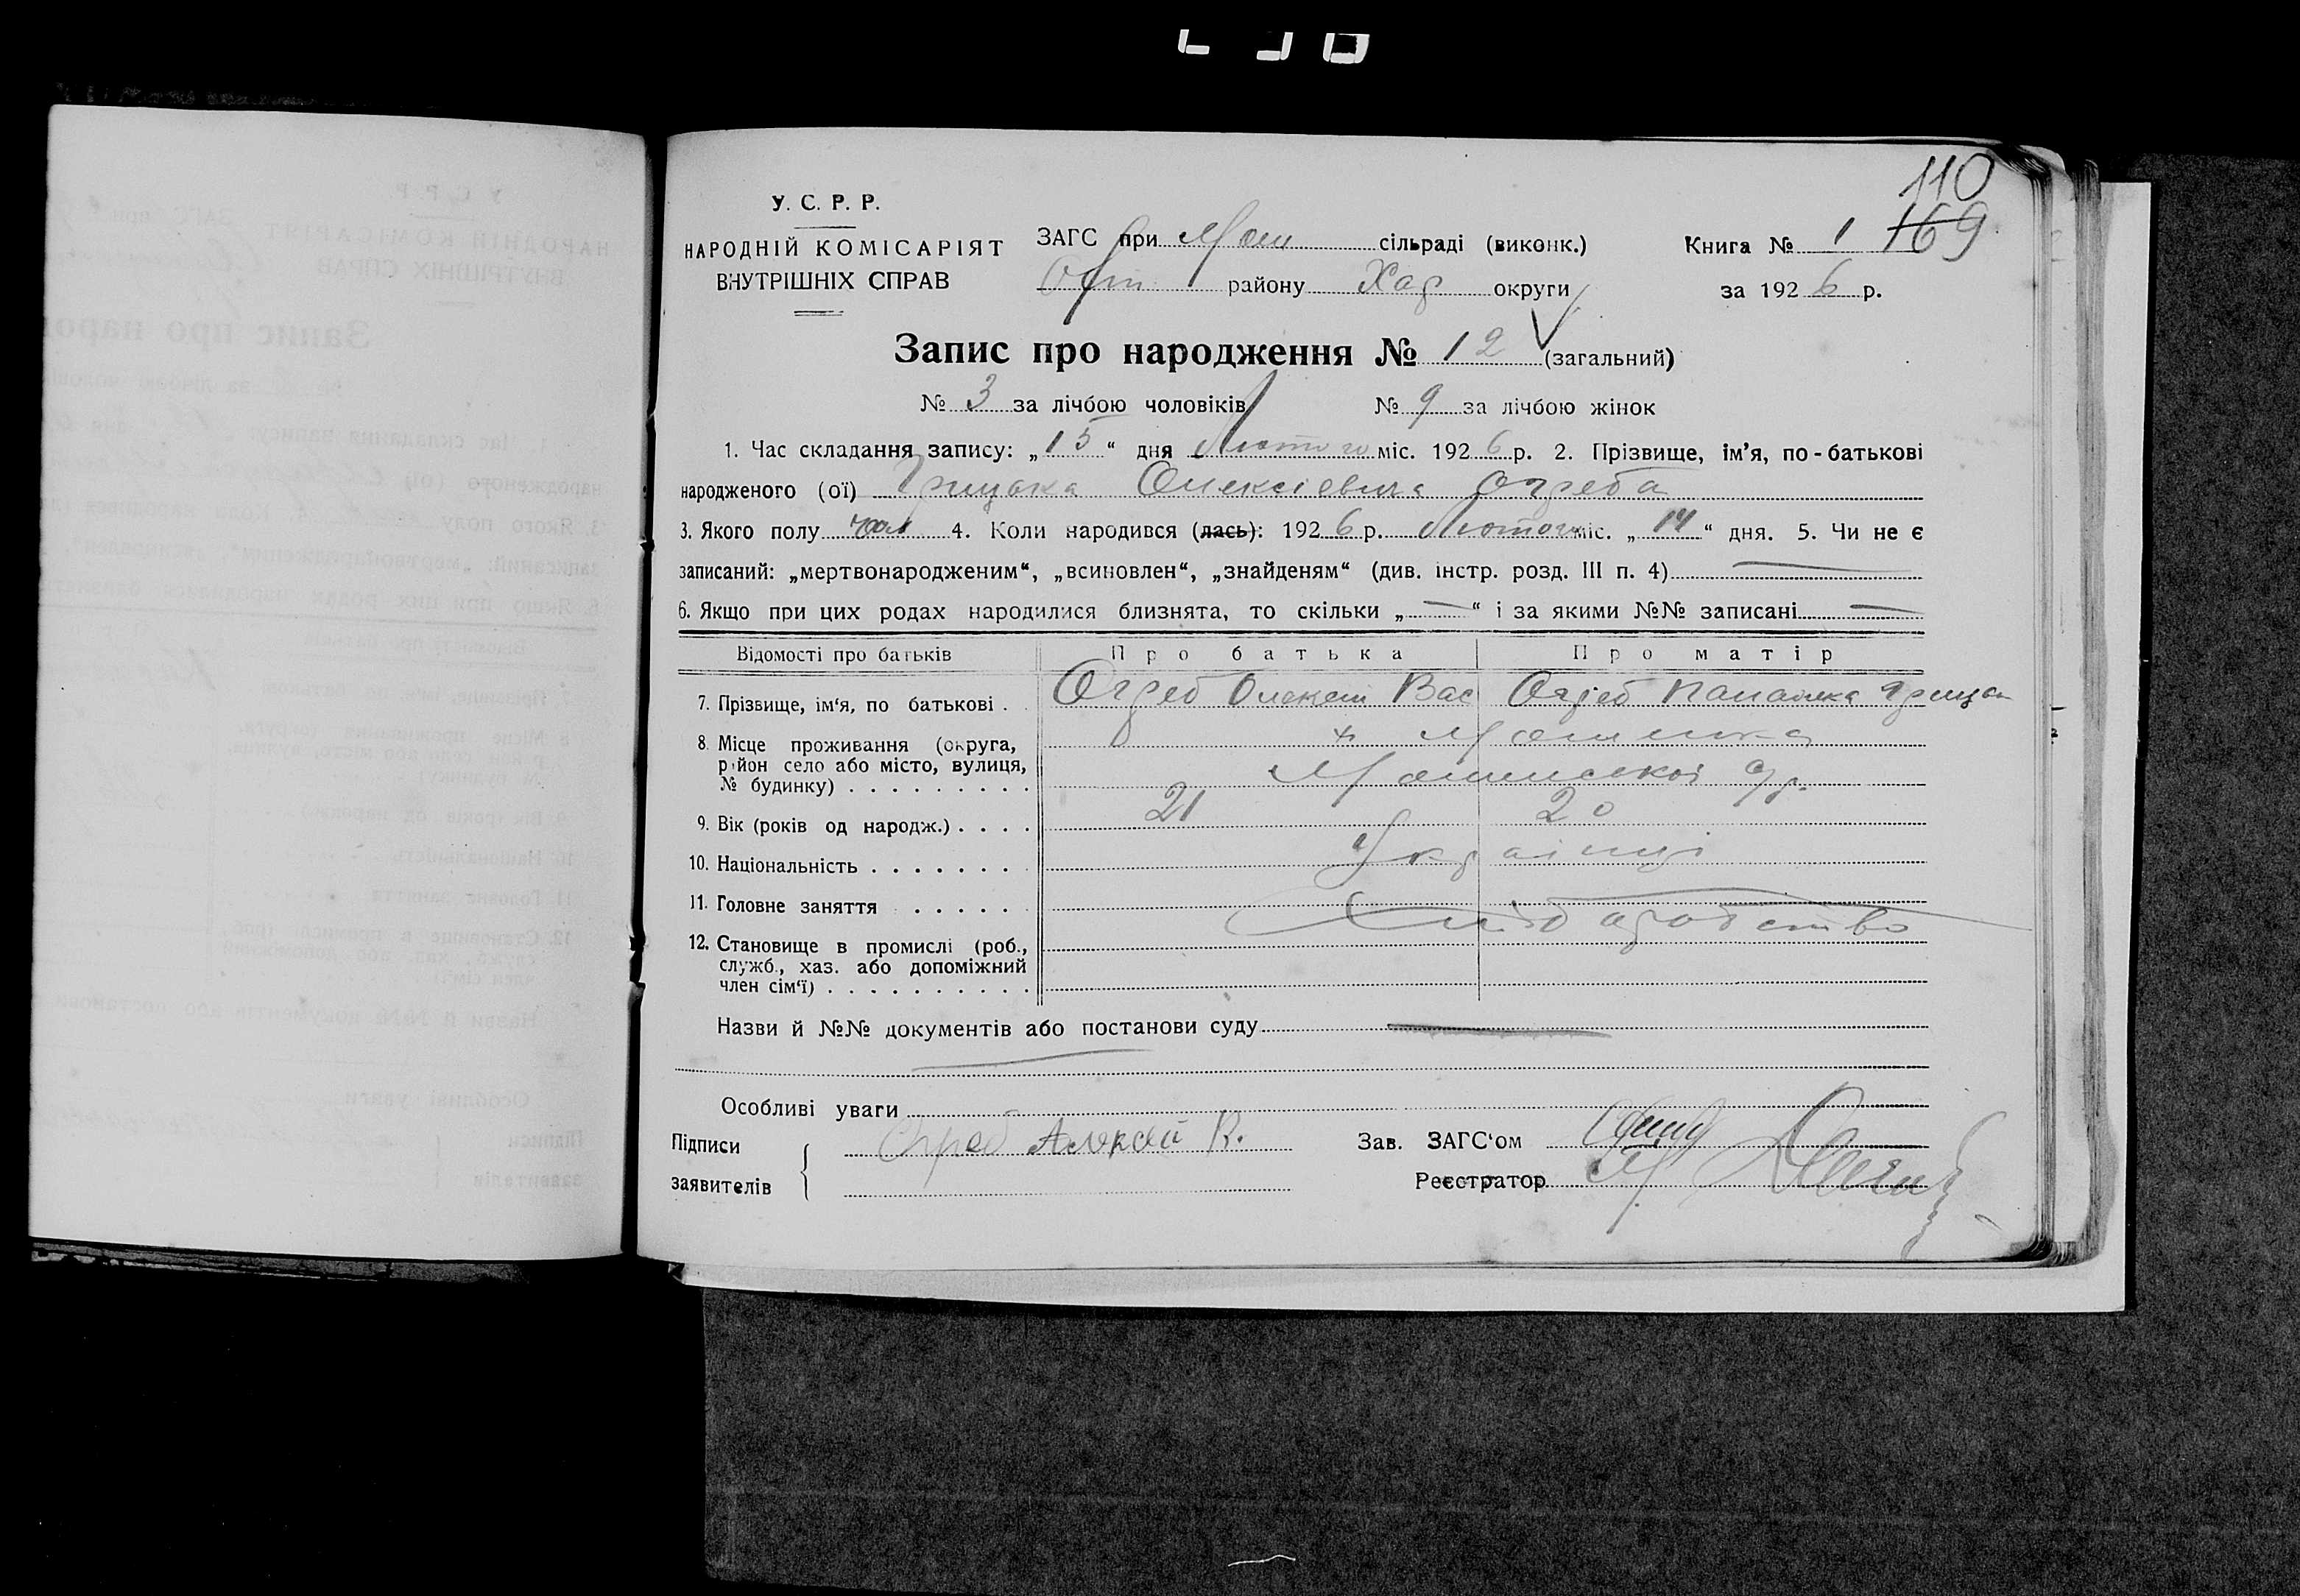 110
У. С. Р. Р.
НАРОДНІЙ КОМІСАРІЯТ
ВНУТРІШНІХ СПРАВ
ЗАГС при сільраді (виконк.)
району Хар округи
Книга № 1 169
за 1926 р.
Запис про народження № 12 (загальний)
№ 3 за лічбою чоловіків № 9 за лічбою жінок
1. Час складання запису: „15“ дня Лютого міс. 1926 р. 2. Прізвище, ім'я, по-батькові
народженого (ої) Грицька Олексієвича Огреба
3. Якого полу чол 4. Коли народився (лась): 1926 р. Лютого міс. „14“ дня. 5. Чи не є
записаний: „мертвонародженим“, „всиновлен“, „знайденям“ (див. інстр. розд. III п. 4)
6. Якщо при цих родах народилися близнята, то скільки „—“ і за якими №№ записані —
Відомості про батьків Про батька Про матір
7. Прізвище, ім'я, по батькові . Огреб Олексій Вас Огреб
8. Місце проживання (округа,
район село або місто, вулиця,
№ будинку) . . . . . . . . .
9. Вік (років од народж.) . . . . 21 20
10. Національність . . . . . . . Українці
11. Головне заняття . . . . . . Хліборобство
12. Становище в промислі (роб.,
служб., хаз. або допоміжний
член сім'ї) . . . . . . . . . .
Назви й №№ документів або постанови суду
Особливі уваги
Підписи Огреб Алексей В. Зав. ЗАГС'ом
заявителів Реєстратор